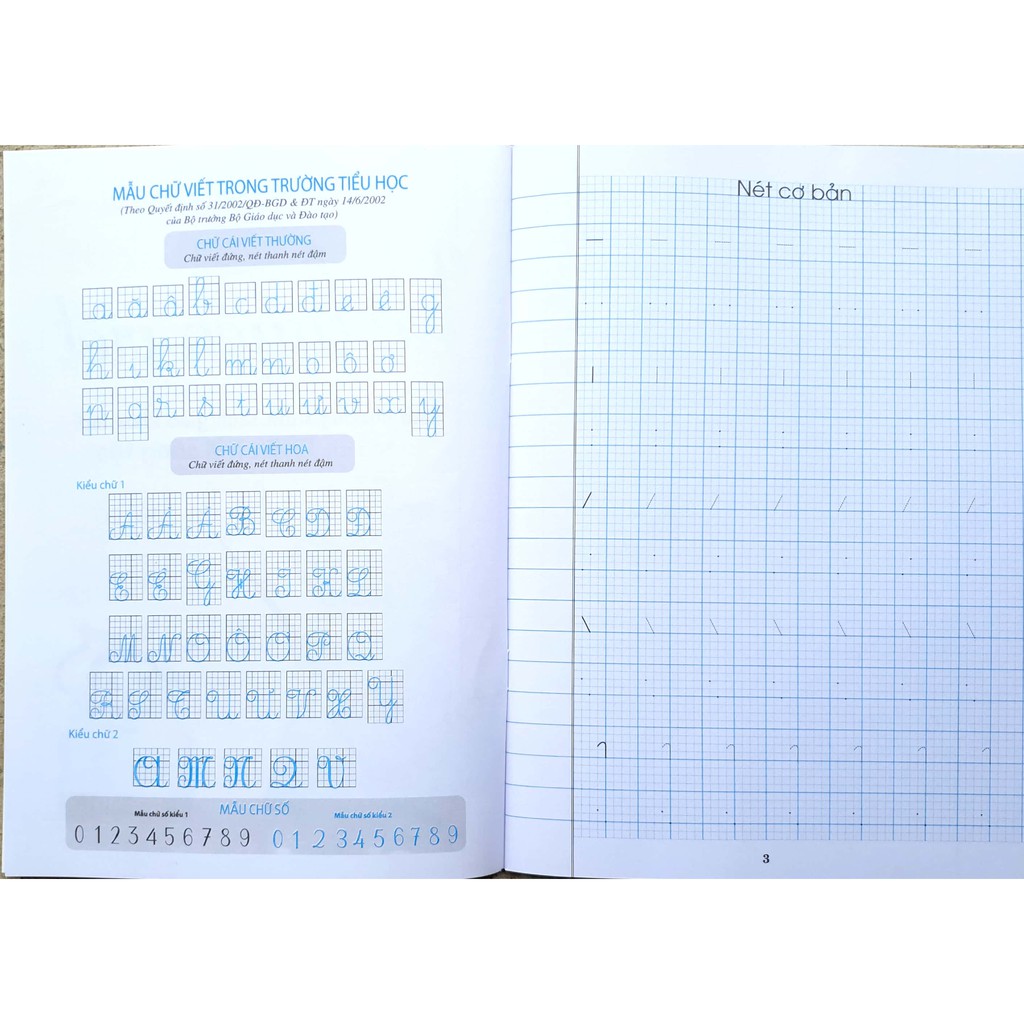 MẪU CHỮ VIẾT TRONG TRƯỜNG TIỂU HỌC
(Theo Quyết định số 31/2002/QĐ-BGD & ĐT ngày 14/6/2002
của Bộ trưởng Bộ Giáo dục và Đào tạo)
CHỮ CÁI VIẾT THƯỜNG
Chữ viết đứng, nét thanh nét đậm
a ă â b c d đ e ê g
h i k l m n o ô ơ
p q r s t u ư v x y
CHỮ CÁI VIẾT HOA
Chữ viết đứng, nét thanh nét đậm
Kiểu chữ 1
A Ă Â B C D Đ
E Ê G H I K L
M N O Ô Ơ P Q
R S T U Ư V X Y
Kiểu chữ 2
A M N Q V
MẪU CHỮ SỐ
Mẫu chữ số kiểu 1
Mẫu chữ số kiểu 2
0 1 2 3 4 5 6 7 8 9
0 1 2 3 4 5 6 7 8 9
Nét cơ bản
3